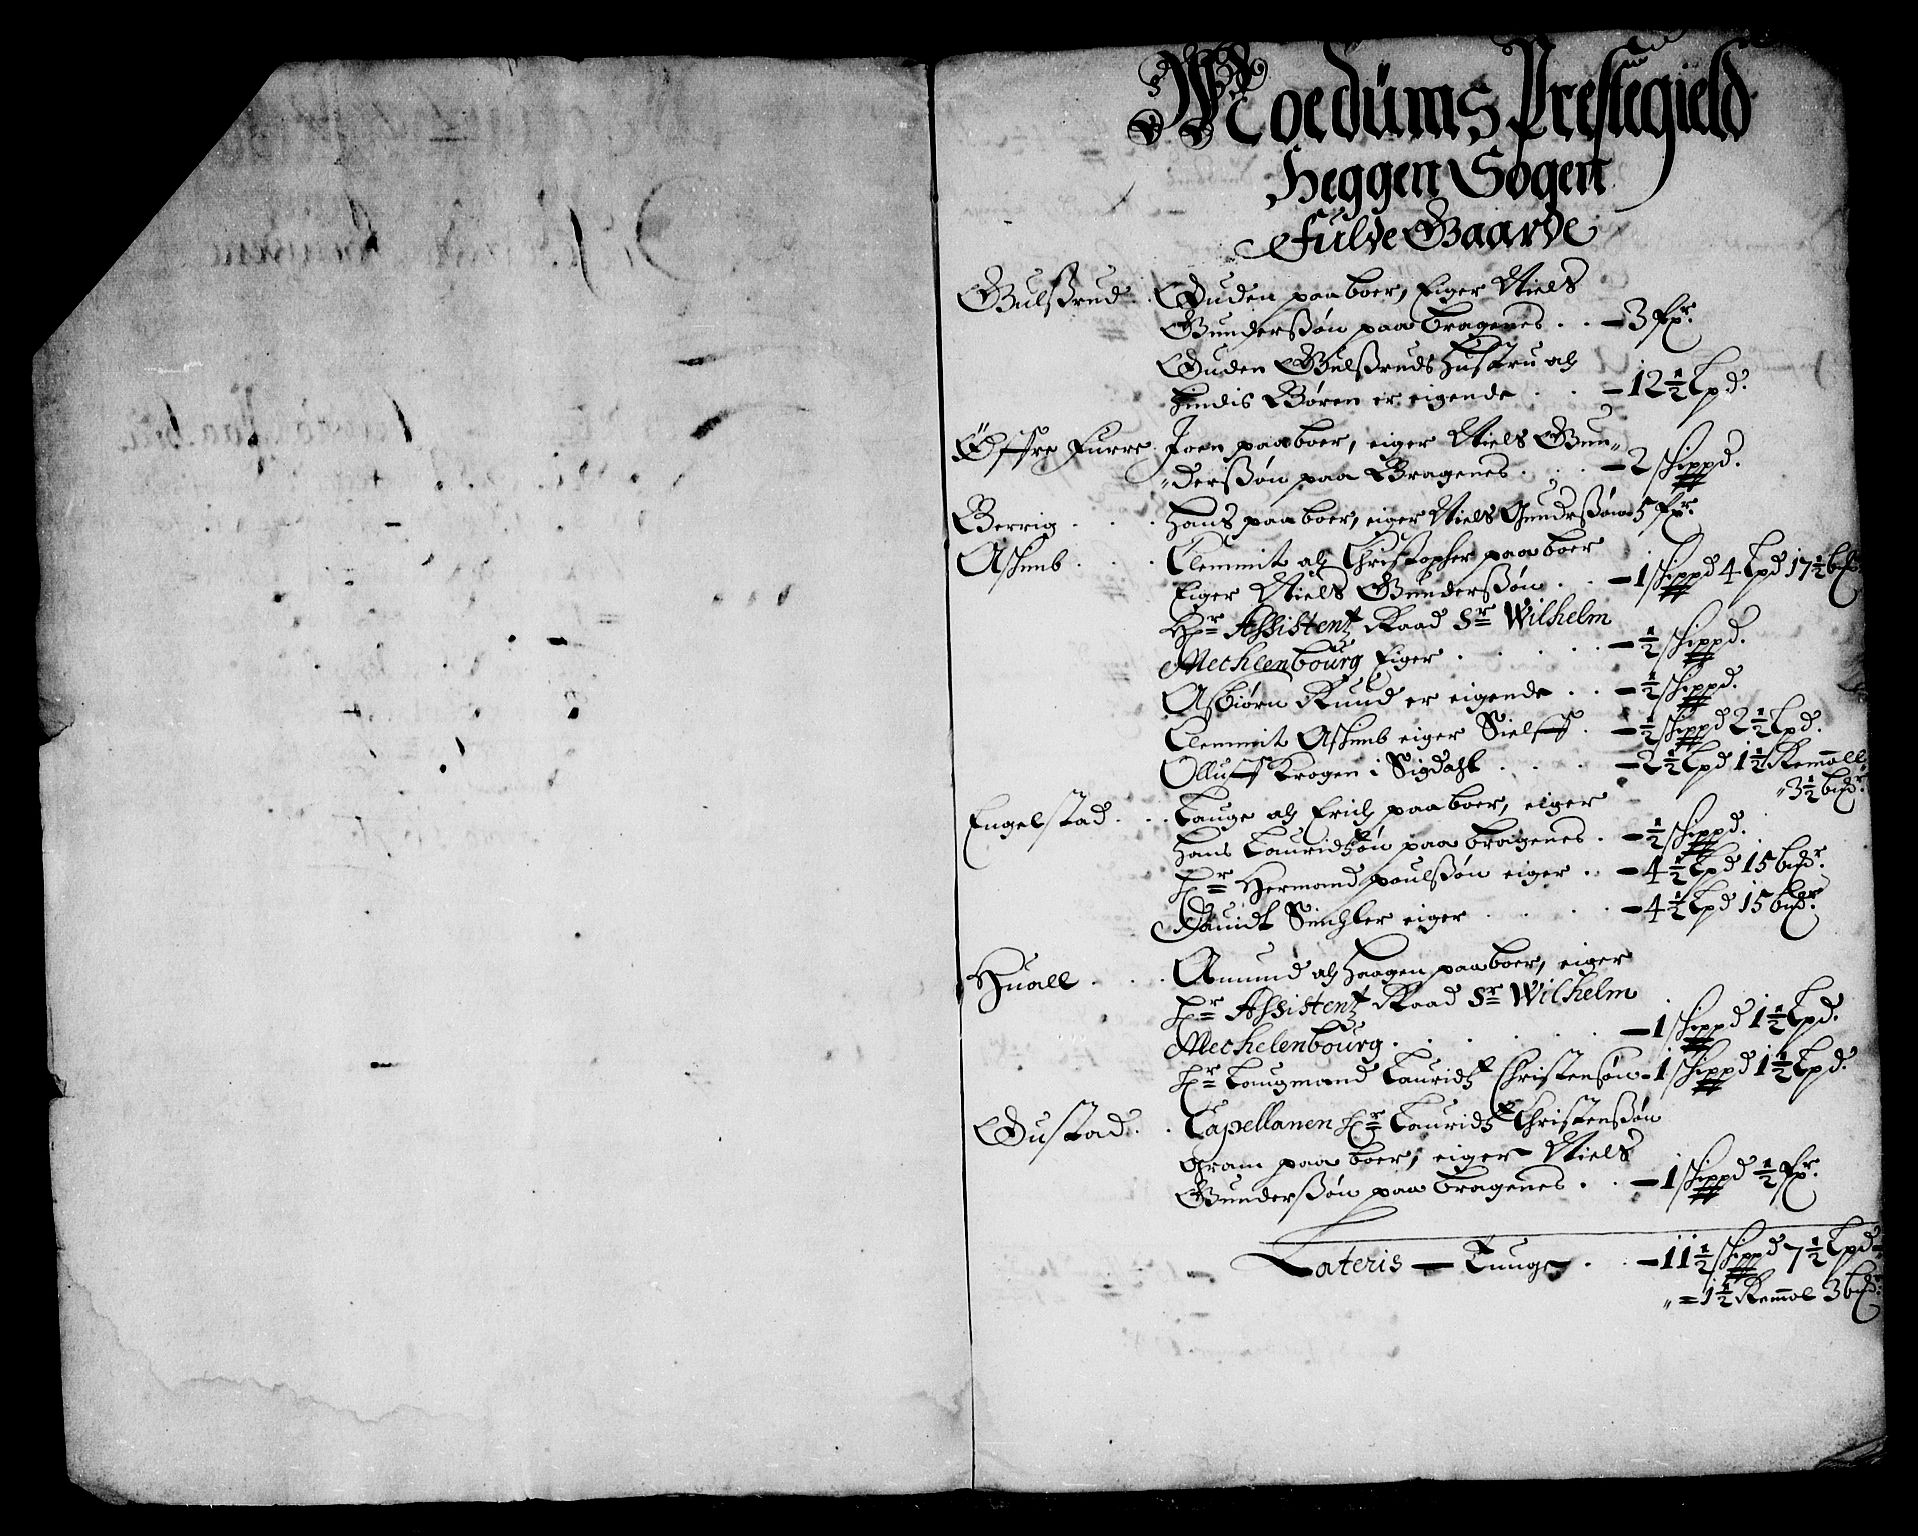 Moedums Prestegield
Heggen Sogen
Fulde Gaarde
Gulsßrud . Guden paaboer, Eiger Niels
Gundersßøn paa bragenes . . – 3 fr.
Guden Gulsßruds hustru och
hindis Børen er eigende . . – 12½ Lpd.
Øffre Furre Joen paaboer, eiger Niels Gun„
„dersßøn paa Bragenes . . . – 2 schippd.
Berrig . . . hans paaboer, eiger Niels Gundrsßøn 5 fr.
Askimb . . . Clemmit och Christopher paaboer
Eiger Niels Gundersßøn . . – 1 schippd 4 Lpd 17½ bd.
Hr. Assistentz Raad Sr Wilhelm
Mechlenbourg Eiger . . . . . – ½ schippd.
Asbiørn Ruud er eigende . . – ½ schippd.
Clemmit Askimb eiger Sielff . – ½ schippd 2½ Lpd.
Olluff Krogen i Sigdahl . . . . – 2½ Lpd 1½ Remoell
„ 3½ bdr.
Engelstad . . . Lauge och Erich paaboer, eiger
Hans Lauridtzøn paa bragenes . – ½ schippd.
hr Hermand poulsßøn eiger . . – 4½ Lpd 15 bdr.
Dauidt Sinchler eiger . . . . – 4½ Lpd 15 bdr.
Huall . . . Amund och haagen paaboer, eiger
hr Assistentz Raad Sr Wilhelm
Mechelenbourg . . . . . . – 1 schippd 1½ Lpd.
hr Laugmand Lauridtz Christensøn – 1 schippd 1½ Lpd.
Gustad . . Capellanen hr Lauridtz Christensßøn
Gram paa boer, eiger Niels
Gundersßøn paa bragenes . . – 1 schippd ½ fr.
Lateris – Tunge . . – 11½ schippd 7½ Lpd
„ = 1½ Remol 3 bdr.